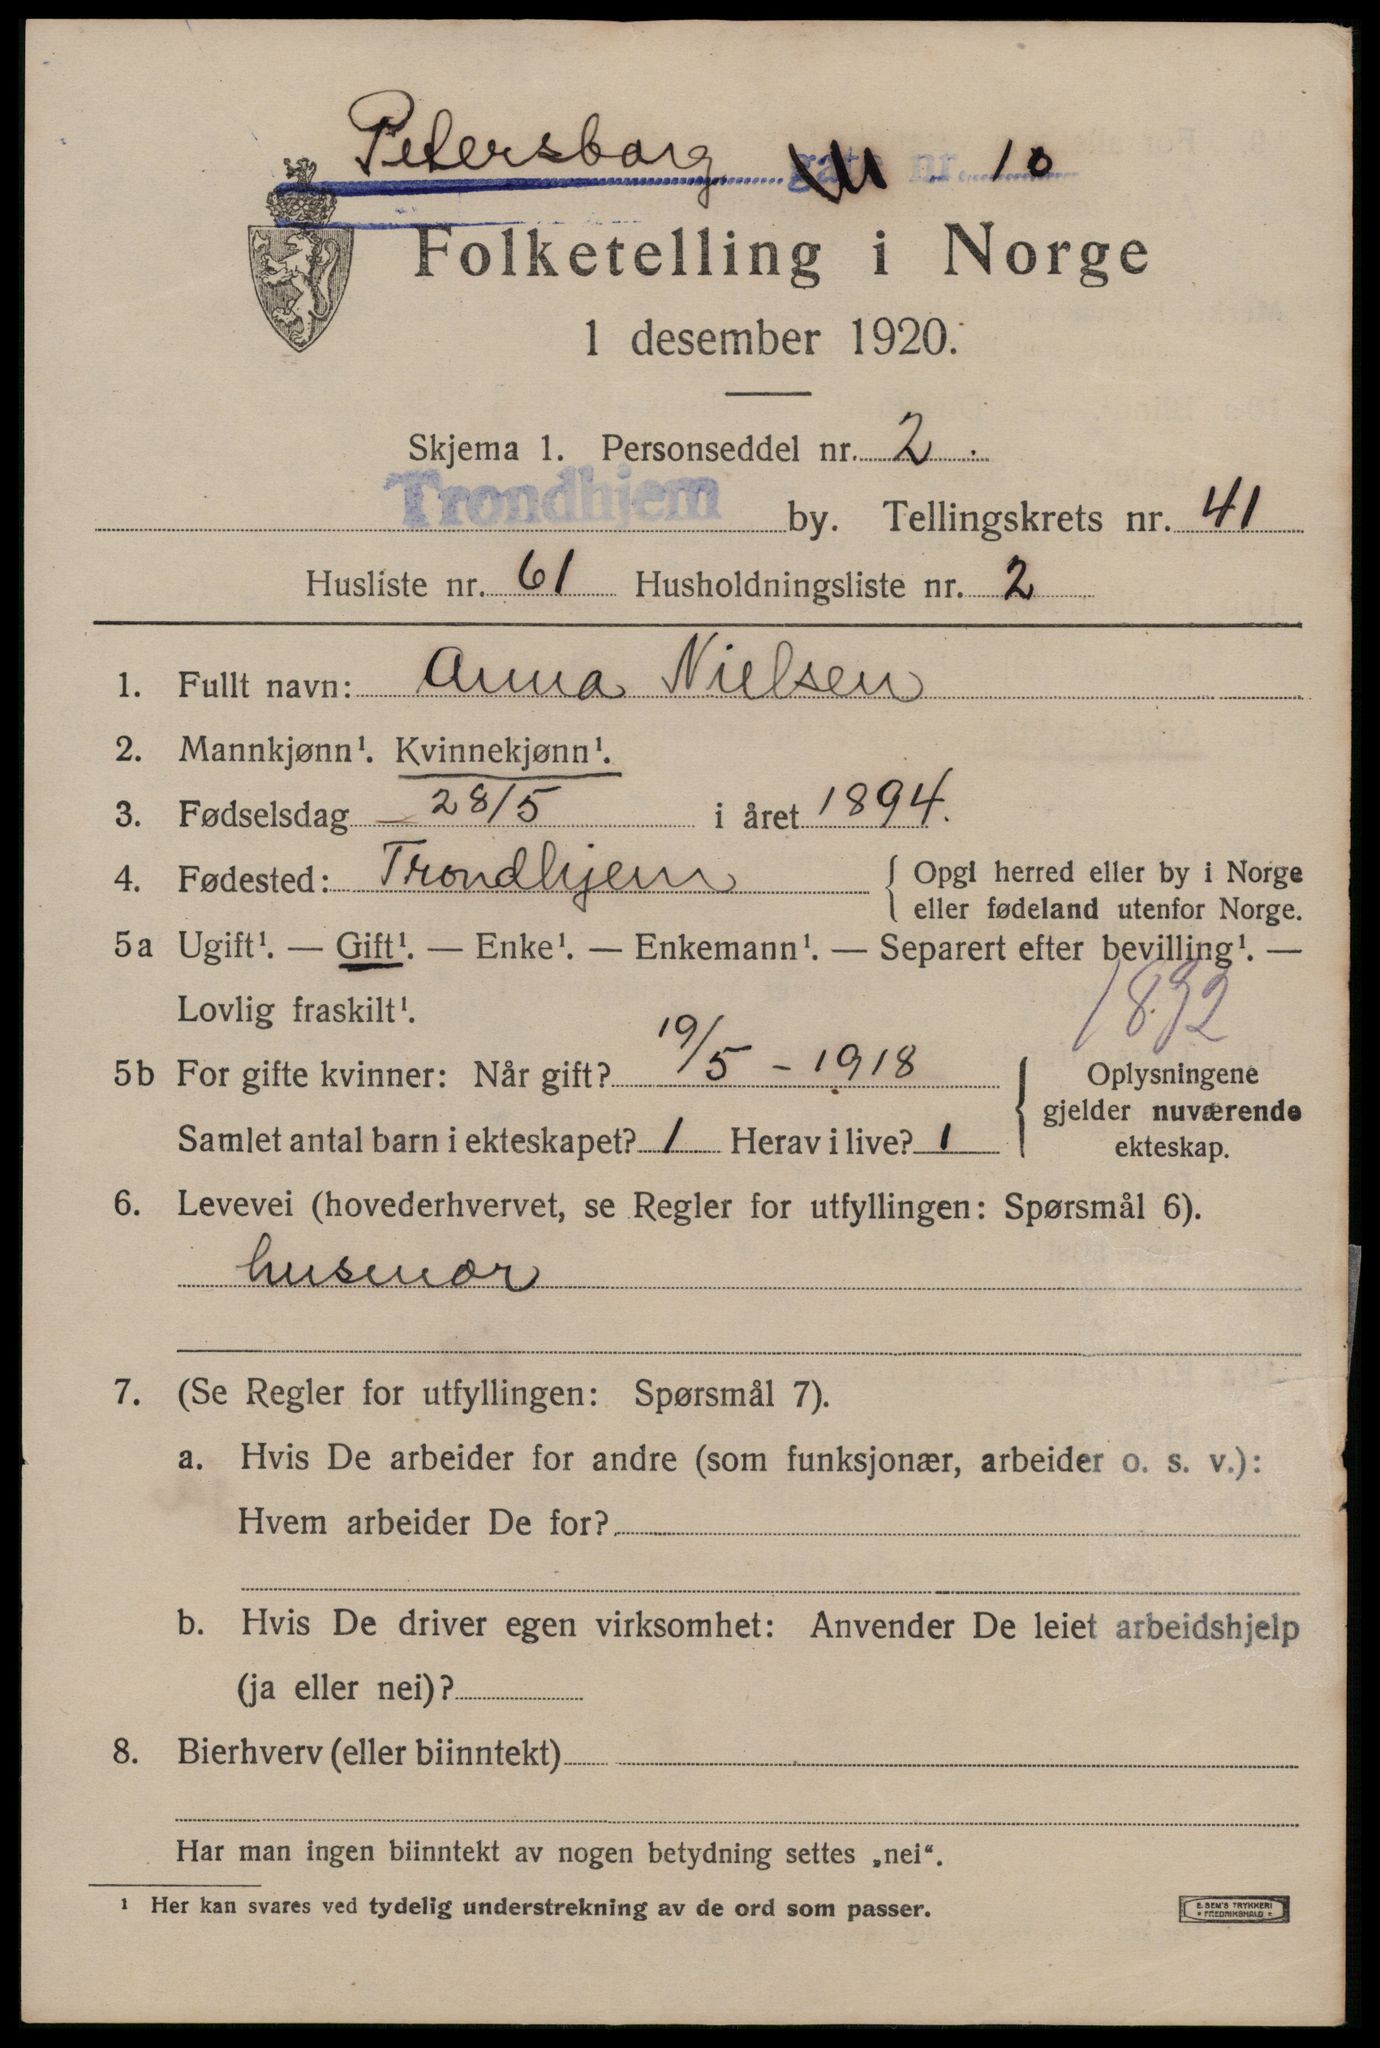 Petersborg gate nr. 10
Folketelling i Norge
1 desember 1920.
Skjema 1. Personseddel nr. 2.
Trondhjem by. Tellingskrets nr. 41
Husliste nr. 61 Husholdningsliste nr. 2
1. Fullt navn: Anna Nielsen
2. Mannkjønn¹. Kvinnekjønn¹.
3. Fødselsdag 28/5 i året 1894.
4. Fødested: Trondhjem { Opgi herred eller by i Norge
eller fødeland utenfor Norge.
5a Ugift¹. — Gift¹. — Enke¹. — Enkemann¹. — Separert efter bevilling¹. —
Lovlig fraskilt¹. 1892
5b For gifte kvinner: Når gift? 19/5 - 1918
Samlet antal barn i ekteskapet? 1 Herav i live? 1
Oplysningene
gjelder nuværende
ekteskap.
6. Levevei (hovederhvervet, se Regler for utfyllingen: Spørsmål 6).
husmor
7. (Se Regler for utfyllingen: Spørsmål 7).
a. Hvis De arbeider for andre (som funksjonær, arbeider o. s. v.):
Hvem arbeider De for?
b. Hvis De driver egen virksomhet: Anvender De leiet arbeidshjelp
(ja eller nei)?
8. Bierhverv (eller biinntekt)
Har man ingen biinntekt av nogen betydning settes „nei“.
¹ Her kan svares ved tydelig understrekning av de ord som passer.
E. SEM'S TRYKKERI
* FREDRIKSHALD *